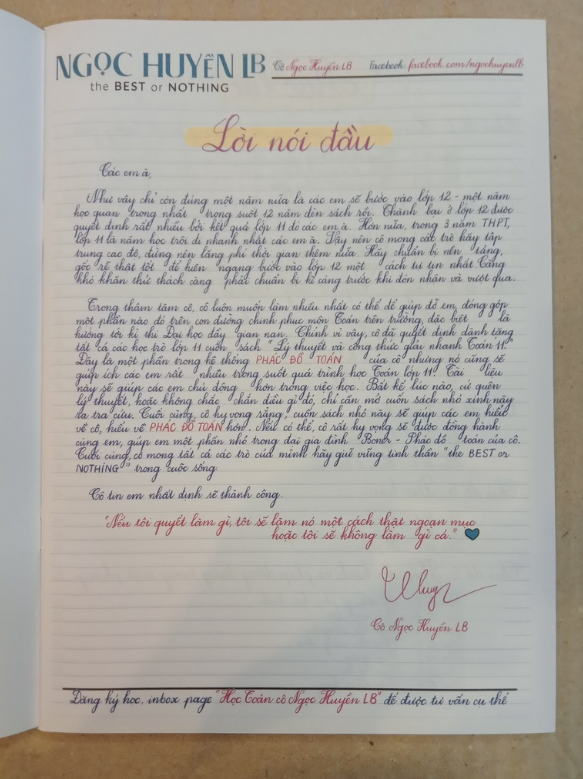 NGỌC HUYỀN LB
the BEST or NOTHING
Cô Ngọc Huyền LB Facebook: facebook.com/ngochuyenlb
Lời nói đầu
Các em à,
Như vậy chỉ còn đúng một năm nữa là các em sẽ bước vào lớp 12 - một năm
học quan trọng nhất trong suốt 12 năm đèn sách rồi. Thành bại ở lớp 12 được
quyết định rất nhiều bởi kết quả lớp 11 đó các em à. Hơn nữa, trong 3 năm THPT,
lớp 11 là năm học trôi đi nhanh nhất các em à. Vậy nên cô mong các trò hãy tập
trung cao độ, đừng nên lãng phí thời gian thêm nữa. Hãy chuẩn bị nền tảng,
gốc rễ thật tốt để hiên ngang bước vào lớp 12 một cách tự tin nhất. Càng
khó khăn thử thách càng phải chuẩn bị kĩ càng trước khi đón nhận và vượt qua.
Trong thâm tâm cô, cô luôn muốn làm nhiều nhất có thể để giúp đỡ em, đóng góp
một phần nào đó trên con đường chinh phục môn Toán trên trường, đặc biệt là
hướng tới kì thi Đại học đầy gian nan. Chính vì vậy, cô đã quyết định dành tặng
tất cả các học trò lớp 11 cuốn sách "Lý thuyết và công thức giải nhanh Toán 11".
Đây là một phần trong hệ thống PHÁC ĐỒ TOÁN của cô nhưng nó cũng sẽ
giúp ích các em rất nhiều trong suốt quá trình học Toán lớp 11. Tài liệu
này sẽ giúp các em chủ động hơn trong việc học. Bất kể lúc nào, cứ quên
lý thuyết, hoặc không chắc chắn điều gì đó, chỉ cần mở cuốn sách nhỏ xinh này
ra tra cứu. Cuối cùng, cô hy vọng rằng, cuốn sách nhỏ này sẽ giúp các em hiểu
về cô, hiểu về PHÁC ĐỒ TOÁN hơn. Nếu có thể, cô rất hy vọng sẽ được đồng hành
cùng em, giúp em một phần nhỏ trong đại gia đình Boner - Phác đồ toán của cô.
Cuối cùng, cô mong tất cả các trò của mình hãy giữ vững tinh thần "the BEST or
NOTHING" trong cuộc sống.
Cô tin em nhất định sẽ thành công.
"Nếu tôi quyết làm gì, tôi sẽ làm nó một cách thật ngoạn mục
hoặc tôi sẽ không làm gì cả."
Cô Ngọc Huyền LB
Đăng ký học, inbox page "Học Toán cô Ngọc Huyền LB" để được tư vấn cụ thể